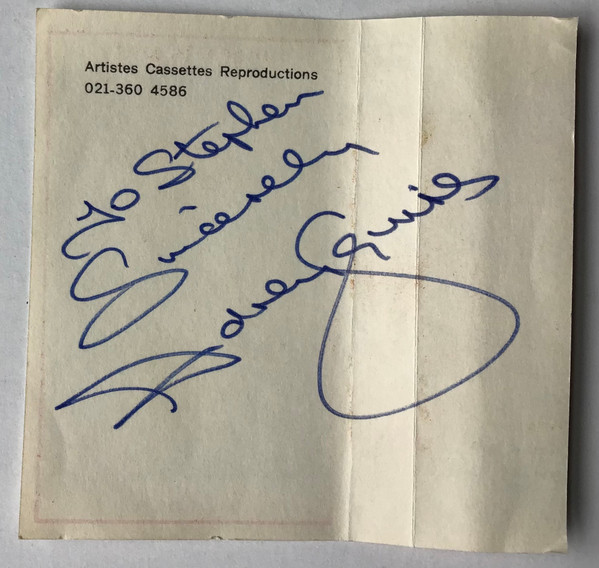 Artistes Cassettes Reproductions
021-360 4586
To Stephen
Sincerely